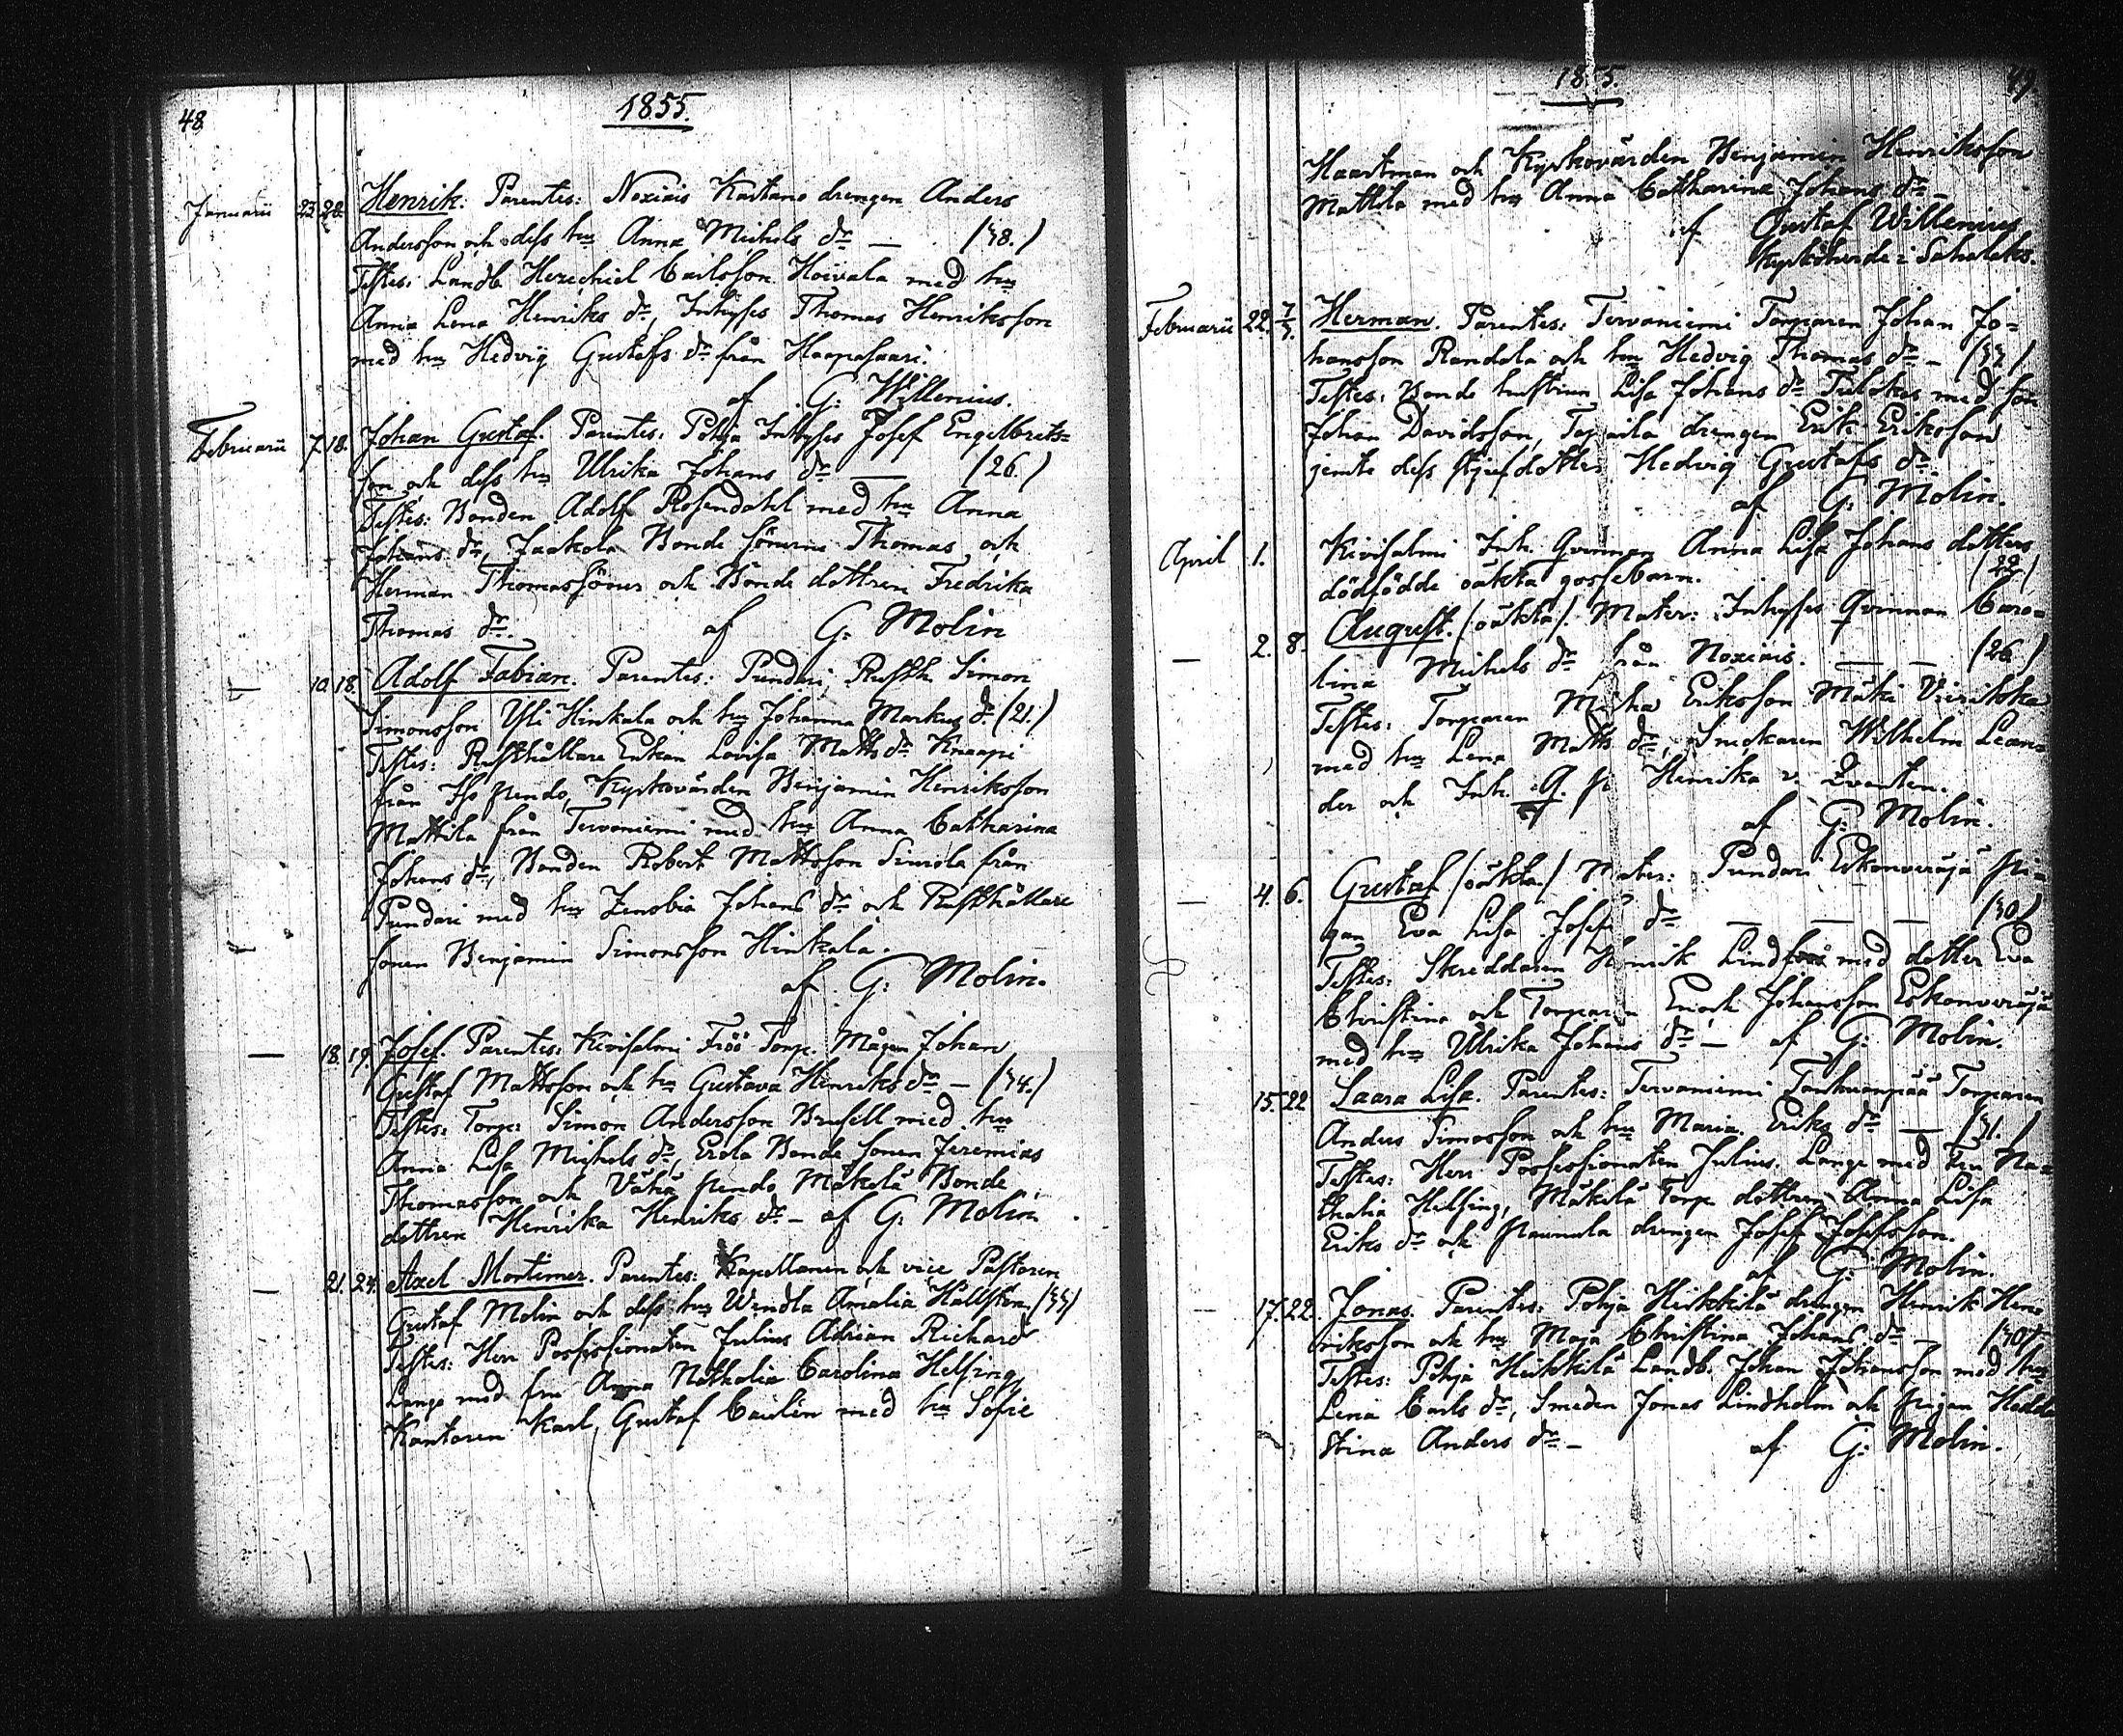 48
1855.
Januarii 23. 28. Henrik: Parentes: Noxiais Kartano drengen Anders
Andersson och dess hu Anna Michels dr — (38.)
Testes: Landb. Hezechiel Carlsson Hoivala med hu
Anna Lena Henriks dr, Inhyses Thomas Henriksson
med hu Hedvig Gustafs dr från Haapasaari.
af G: Willenius.
Februarii 7. 18. Johan Gustaf. Parentes: Pohja Inhyses Josef Engelbrets-
son och dess hu Ulrika Johans dr — (26.)
Testes: Bonden Adolf Rosendahl med hu Anna
Johans dr, Jaakola Bonde sönerne Thomas och
Herman Thomassöner och Bonde dottren Fredrika
Thomas dr. af G: Molin
— 10. 18. Adolf Fabian. Parentes: Pundari Rusth. Simon
Simonsson Yli Hinkala och hu Johanna Markus dr (21.)
Testes: Rusthållare Enkan Lovisa Matts dr Knaapi
från Iso pendo, Kyrkovärden Benjamin Henriksson
Mattila från Tervaniemi med hu Anna Catharina
Johans dr, Bonden Robert Mattsson Simola från
Pundari med hu Zenobia Johans dr och Rusthållare
sonen Benjamin Simonsson Hinkala.
af G: Molin.
— 18. 19. Josef. Parentes: Kivisalmi Frös Torp. Mågen Johan
Gustaf Mattsson och hu Gustava Henriks dr — (34.)
Testes: Torp: Simon Andersson Brusell med hu
Anna Lisa Michels dr, Erola Bonde sonen Jeremias
Thomasson och Vähä pendo Mäkelä Bonde
dottren Henrika Henriks dr — af G: Molin
— 21. 24. Axel Mortimer. Parentes: Kapellanen och vice Pastoren
Gustaf Molin och dess hu Wendla Amalia Hällsten (33)
Testes: Herr Possessionaten Julius Adrian Richard
Lange med fru Anna Nathalia Carolina Helsing,
Kantoren Karl Gustaf Cairlén med hu Sofie
1855. 49.
Haartman och Kyrkovärden Benjamin Henriksson
Mattila med hu Anna Catharina Johans dr —
af Gustaf Willenius
Kyrkoherde i Sahalaks.
Februarii 22. 7/3. Herman. Parentes: Tervaniemi Torparen Johan Jo-
hansson Randala och hu Hedvig Thomas dr — (33)
Testes: Bonde hustrun Lisa Johans dr Tulokas med son
Johan Davidsson, Tapaila drengen Erik Eriksson
jemte dess styfdotter Hedvig Gustafs dr.
af G: Molin.
April 1. Kivisalmi Inh. Qvinnan Anna Lisa Johans dotters
dödfödde oäkta gossebarn. (22)
— 2. 8. August. (oäkta). Mater: Inhyses Qvinnan Caro-
lina Michels dr från Noxiais. — — (26)
Testes: Torparen Michel Eriksson Mäki Vierikka
med hu Lena Matts dr, Snickaren Wilhelm Lean-
der och Inh. Q. p. Henrika v. Qvarten.
af G: Molin.
— 4. 6. Gustaf (oäkta) Mater: Pundari Eskonveräjä pi-
gan Eva Lisa Josefs dr — — — (30)
Testes: Skreddaren Henrik Lindfors med dotter Eva
Christina och Torparen Enoch Johansson Eskonveräjä
med hu Ulrika Johans dr — af G: Molin.
15. 22. Saara Lisa. Parentes: Tervaniemi Tanhuanpää Torparen
Anders Simosson och hu Maria Eriks dr — (31.)
Testes: Herr Possessionaten Julius Lange med Fru Na-
thalia Helsing, Mäkelä Torp. dottren Anna Lisa
Eriks dr och Paunula drengen Josef Josefsson.
af G: Molin.
— 17. 22. Jonas. Parentes: Pohja Heikkilä drengen Henrik Hen-
riksson och hu Maja Christina Johans dr — (30)
Testes: Pohja Heikkilä Landb. Johan Johansson med hu
Lena Carls dr, Smeden Jonas Lindholm och pigan Hedda
Stina Anders dr — af G: Molin.